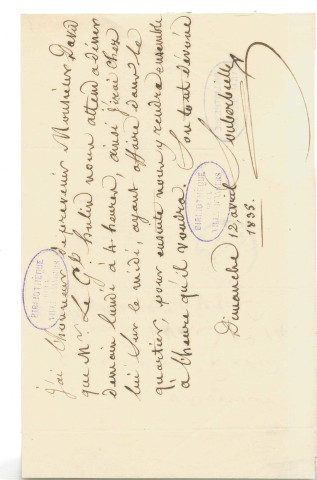 j'ai l'honneur de prevenir Monsieur David
que Mr. Le Gal. hulin nous attend a diner
demain lundi à 4 heures, ainsi j'irai chez
lui sur le midi, ayant affaire dans le
quartier, pour ensuite nous y rendre ensemble
à l'heure qu'il voudra. Son tout dévoué
Souberbielle
Dimanche 12 avril
1835.
BIBLIOTHEQUE
BIBLIOTHEQUE